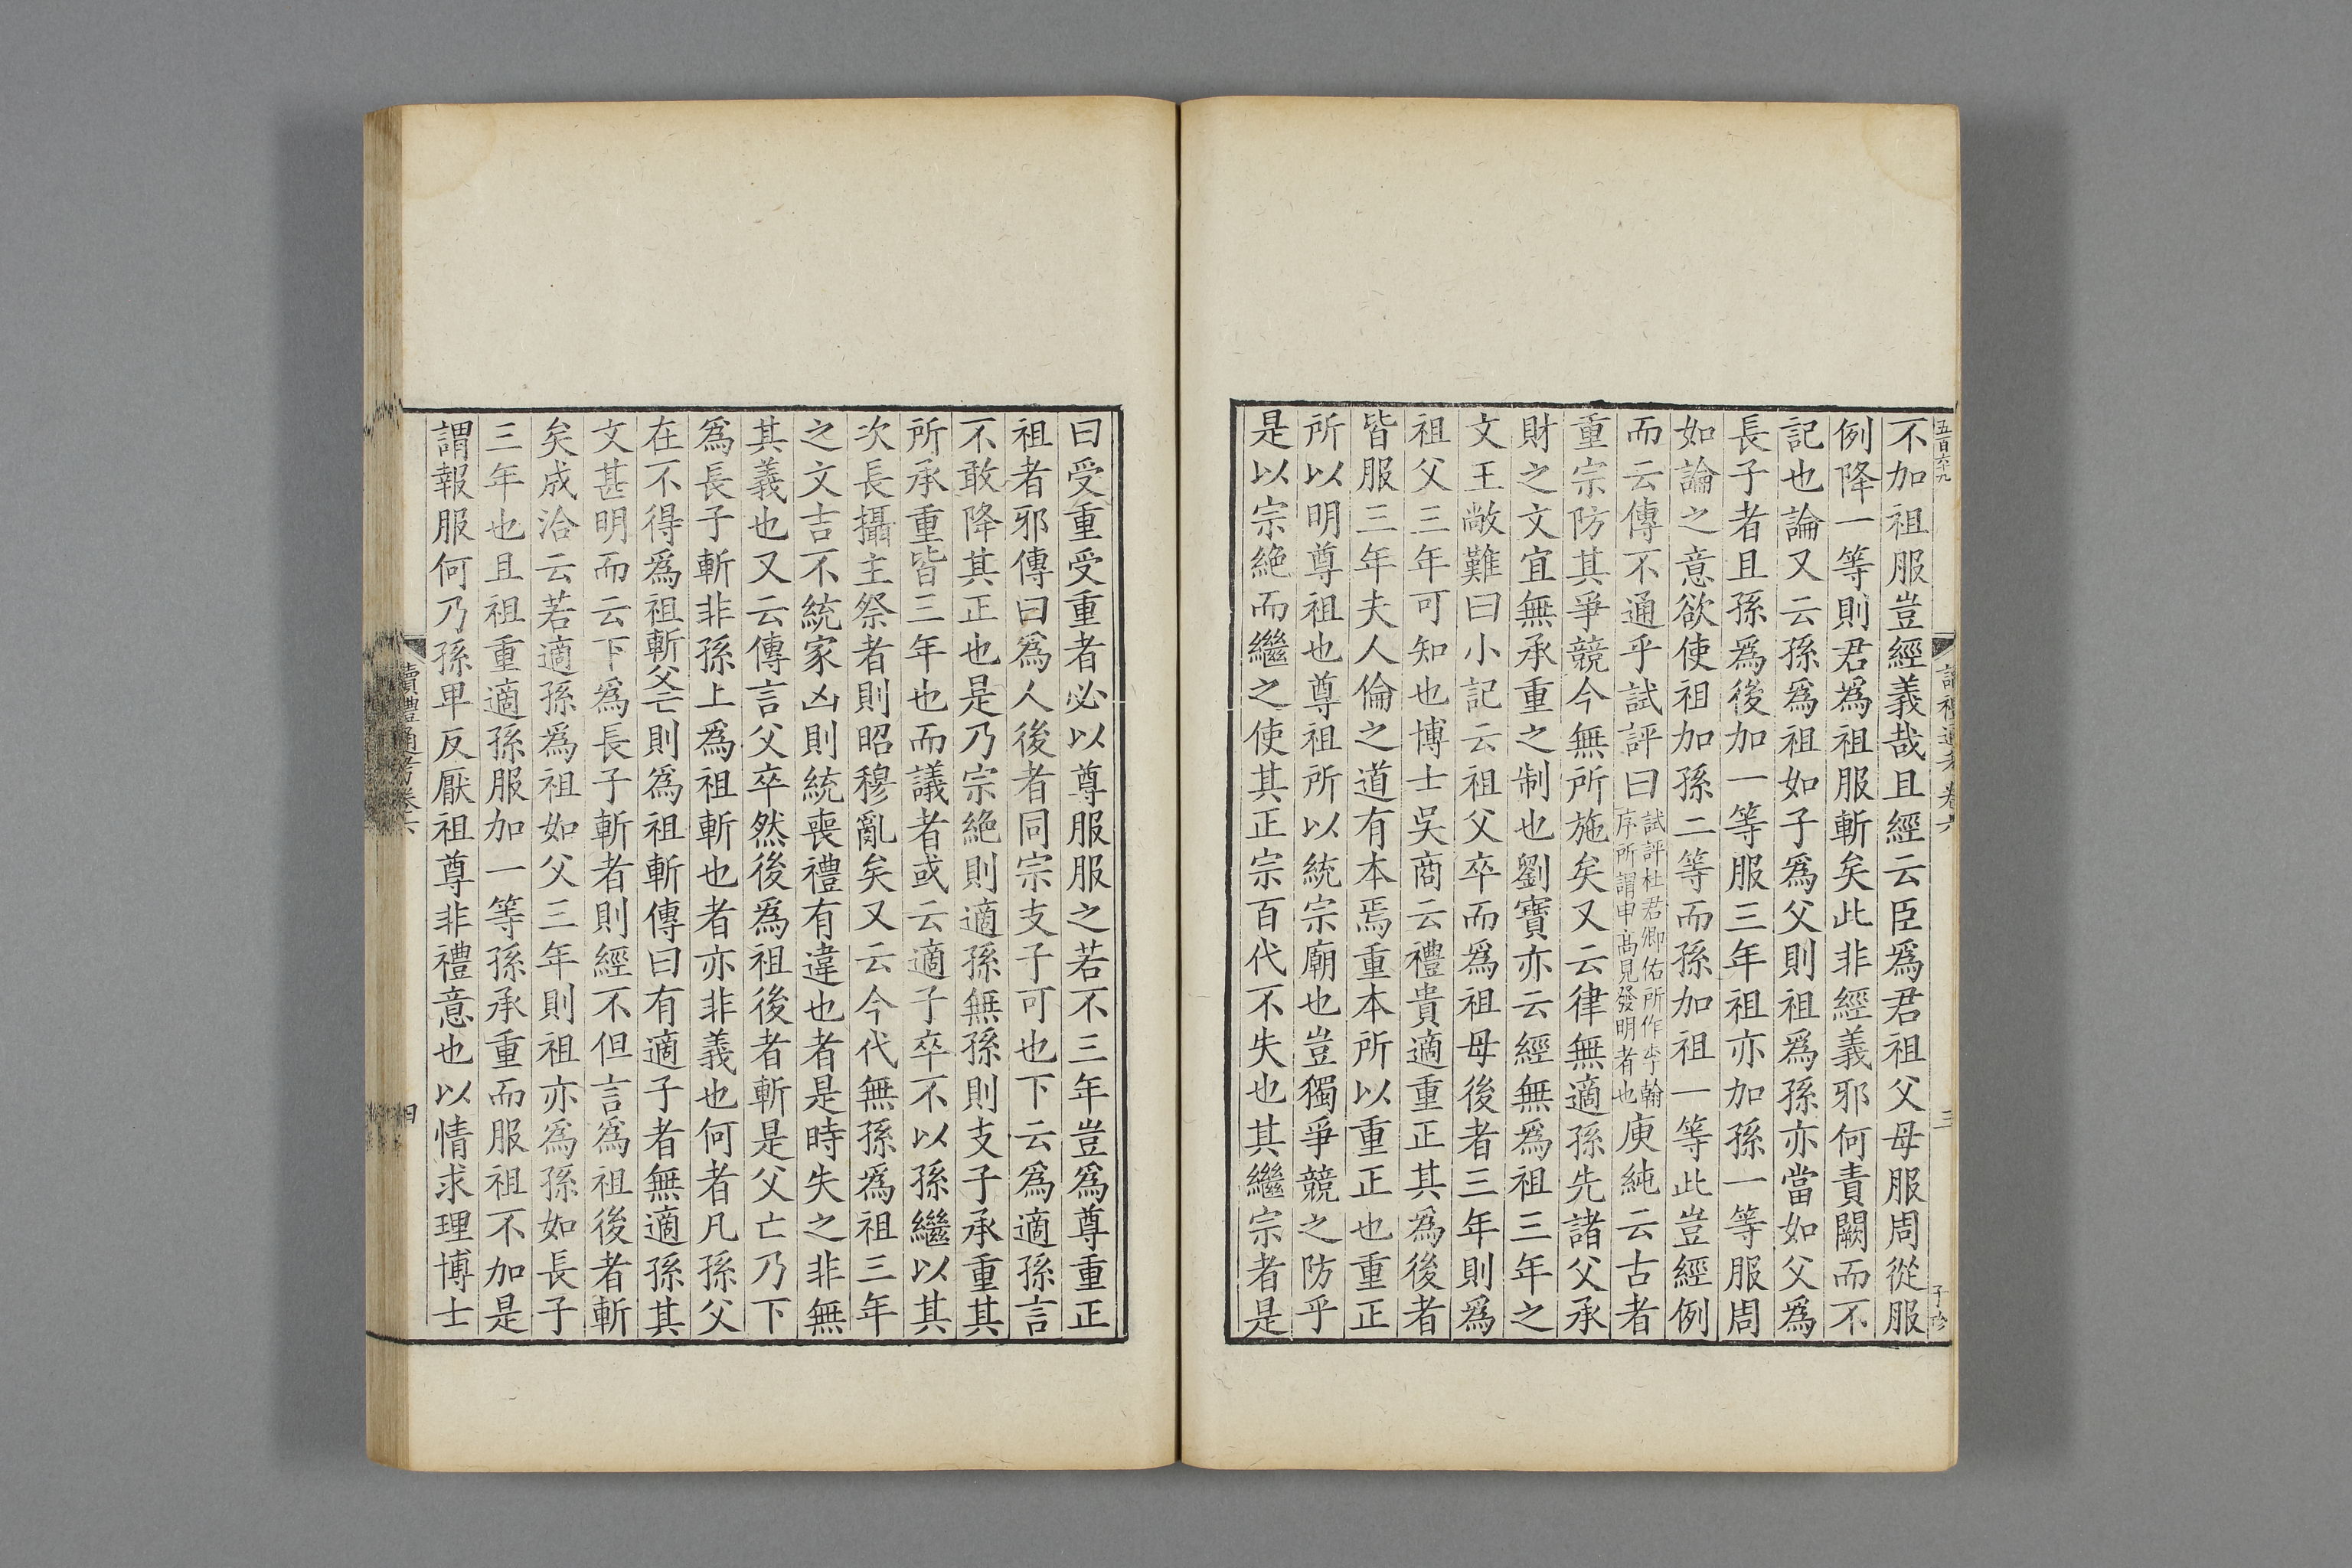 五百六十九
讀禮通考卷六
三
子珍
不加祖服豈經義哉且經云臣爲君祖父母服周從服
例降一等則君爲祖服斬矣此非經義邪何責闕而不
記也論又云孫爲祖如子爲父則祖爲孫亦當如父爲
長子者且孫爲後加一等服三年祖亦加孫一等服周
如論之意欲使祖加孫二等而孫加祖一等此豈經例
而云傳不通乎試評曰試評杜君卿佑所作李翰序所謂申高見發明者也庾純云古者
重宗防其爭競今無所施矣又云律無適孫先諸父承
財之文宜無承重之制也劉寶亦云經無爲祖三年之
文王敞難曰小記云祖父卒而爲祖母後者三年則爲
祖父三年可知也博士吳商云禮貴適重正其爲後者
皆服三年夫人倫之道有本焉重本所以重正也重正
所以明尊祖也尊祖所以統宗廟也豈獨爭競之防乎
是以宗絶而繼之使其正宗百代不失也其繼宗者是
曰受重受重者必以尊服服之若不三年豈爲尊重正
祖者邪傳曰爲人後者同宗支子可也下云爲適孫言
不敢降其正也是乃宗絶則適孫無孫則支子承重其
所承重皆三年也而議者或云適子卒不以孫繼以其
次長攝主祭者則昭穆亂矣又云今代無孫爲祖三年
之文吉不統家凶則統喪禮有違也者是時失之非無
其義也又云傳言父卒然後爲祖後者斬是父亡乃下
爲長子斬非孫上爲祖斬也者亦非義也何者凡孫父
在不得爲祖斬父亡則爲祖斬傳曰有適子者無適孫其
文甚明而云下爲長子斬者則經不但言爲祖後者斬
矣成洽云若適孫爲祖如父三年則祖亦爲孫如長子
三年也且祖重適孫服加一等孫承重而服祖不加是
謂報服何乃孫卑反厭祖尊非禮意也以情求理博士
讀禮通考卷六
四